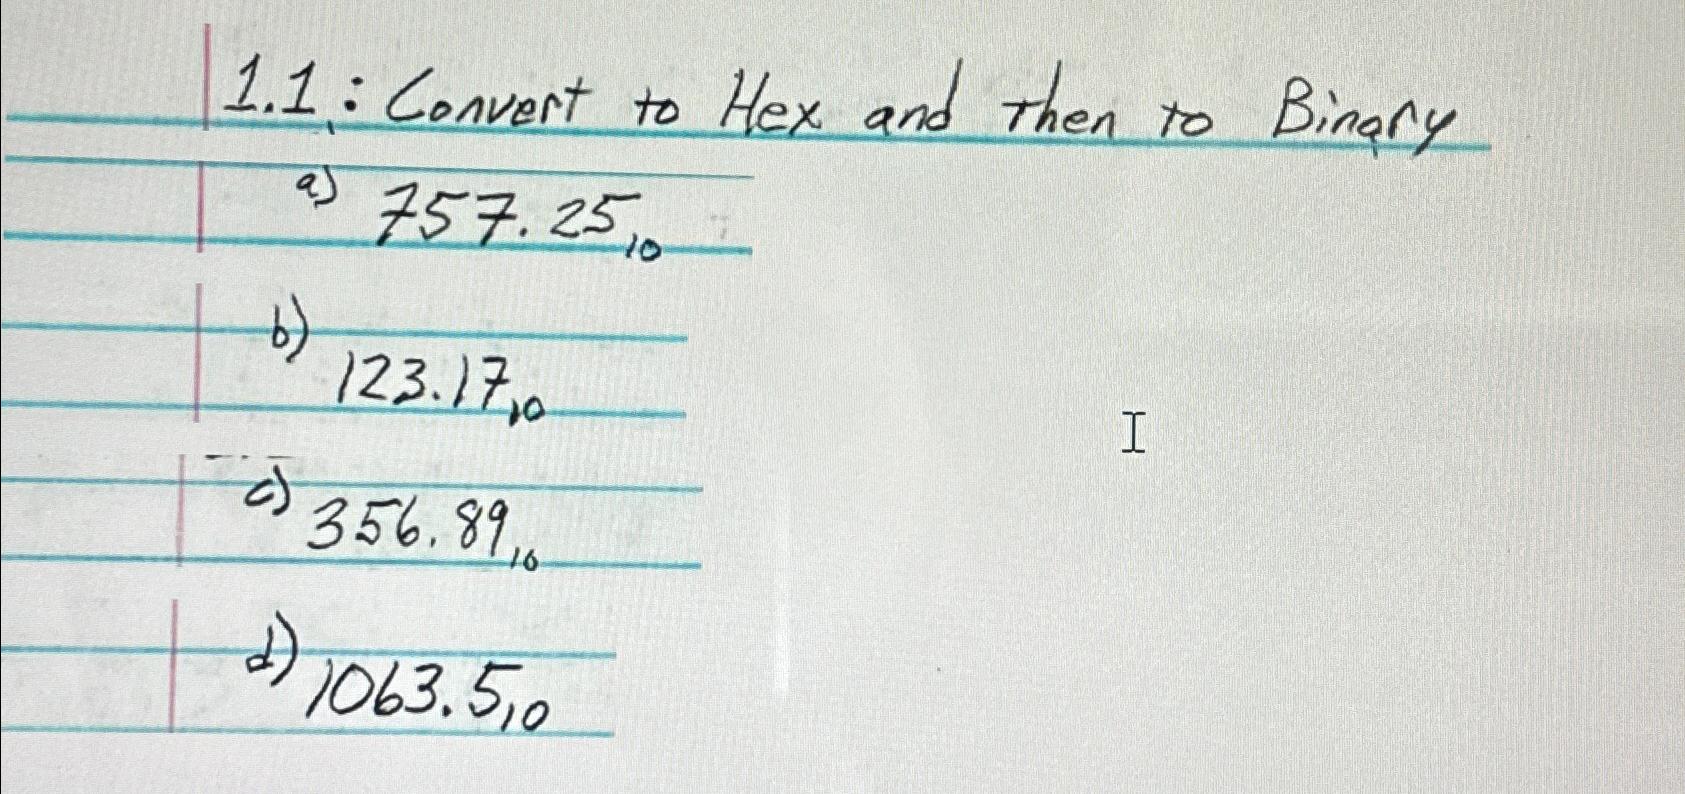 1.1: Convert to Hex and then to Binary
a) 757.25₁₀
b) 123.17₁₀
c) 356.89₁₀
d) 1063.5₁₀